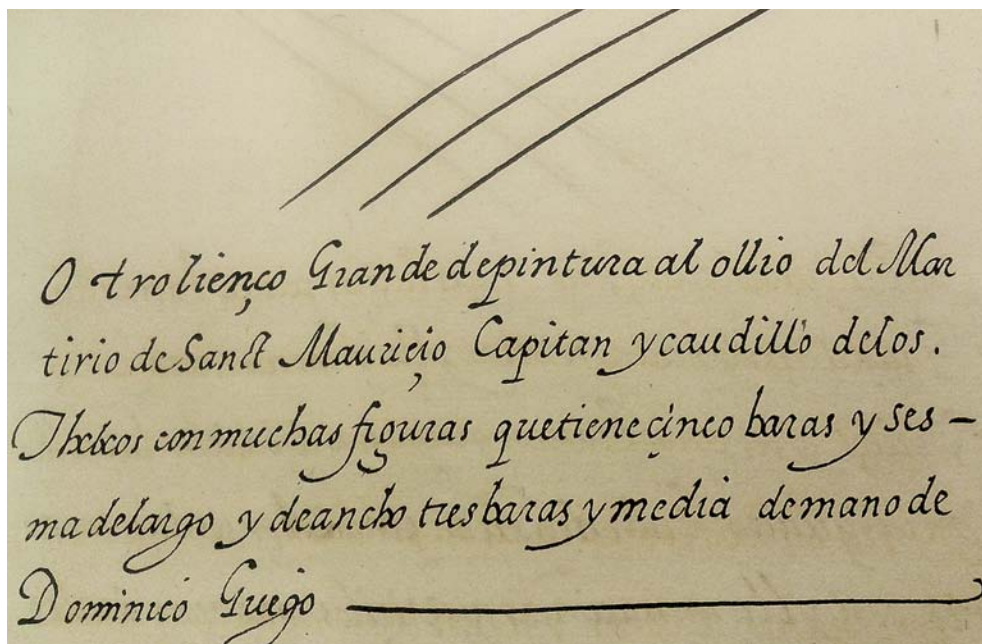 Otro lienço Grande de pintura al ollio del Mar
tirio de Sanct Mauriçio Capitan y caudillo delos.
Thebeos con muchas figuras que tiene çinco baras y ses -
ma de largo y de ancho tres baras y media de mano de
Dominico Griego